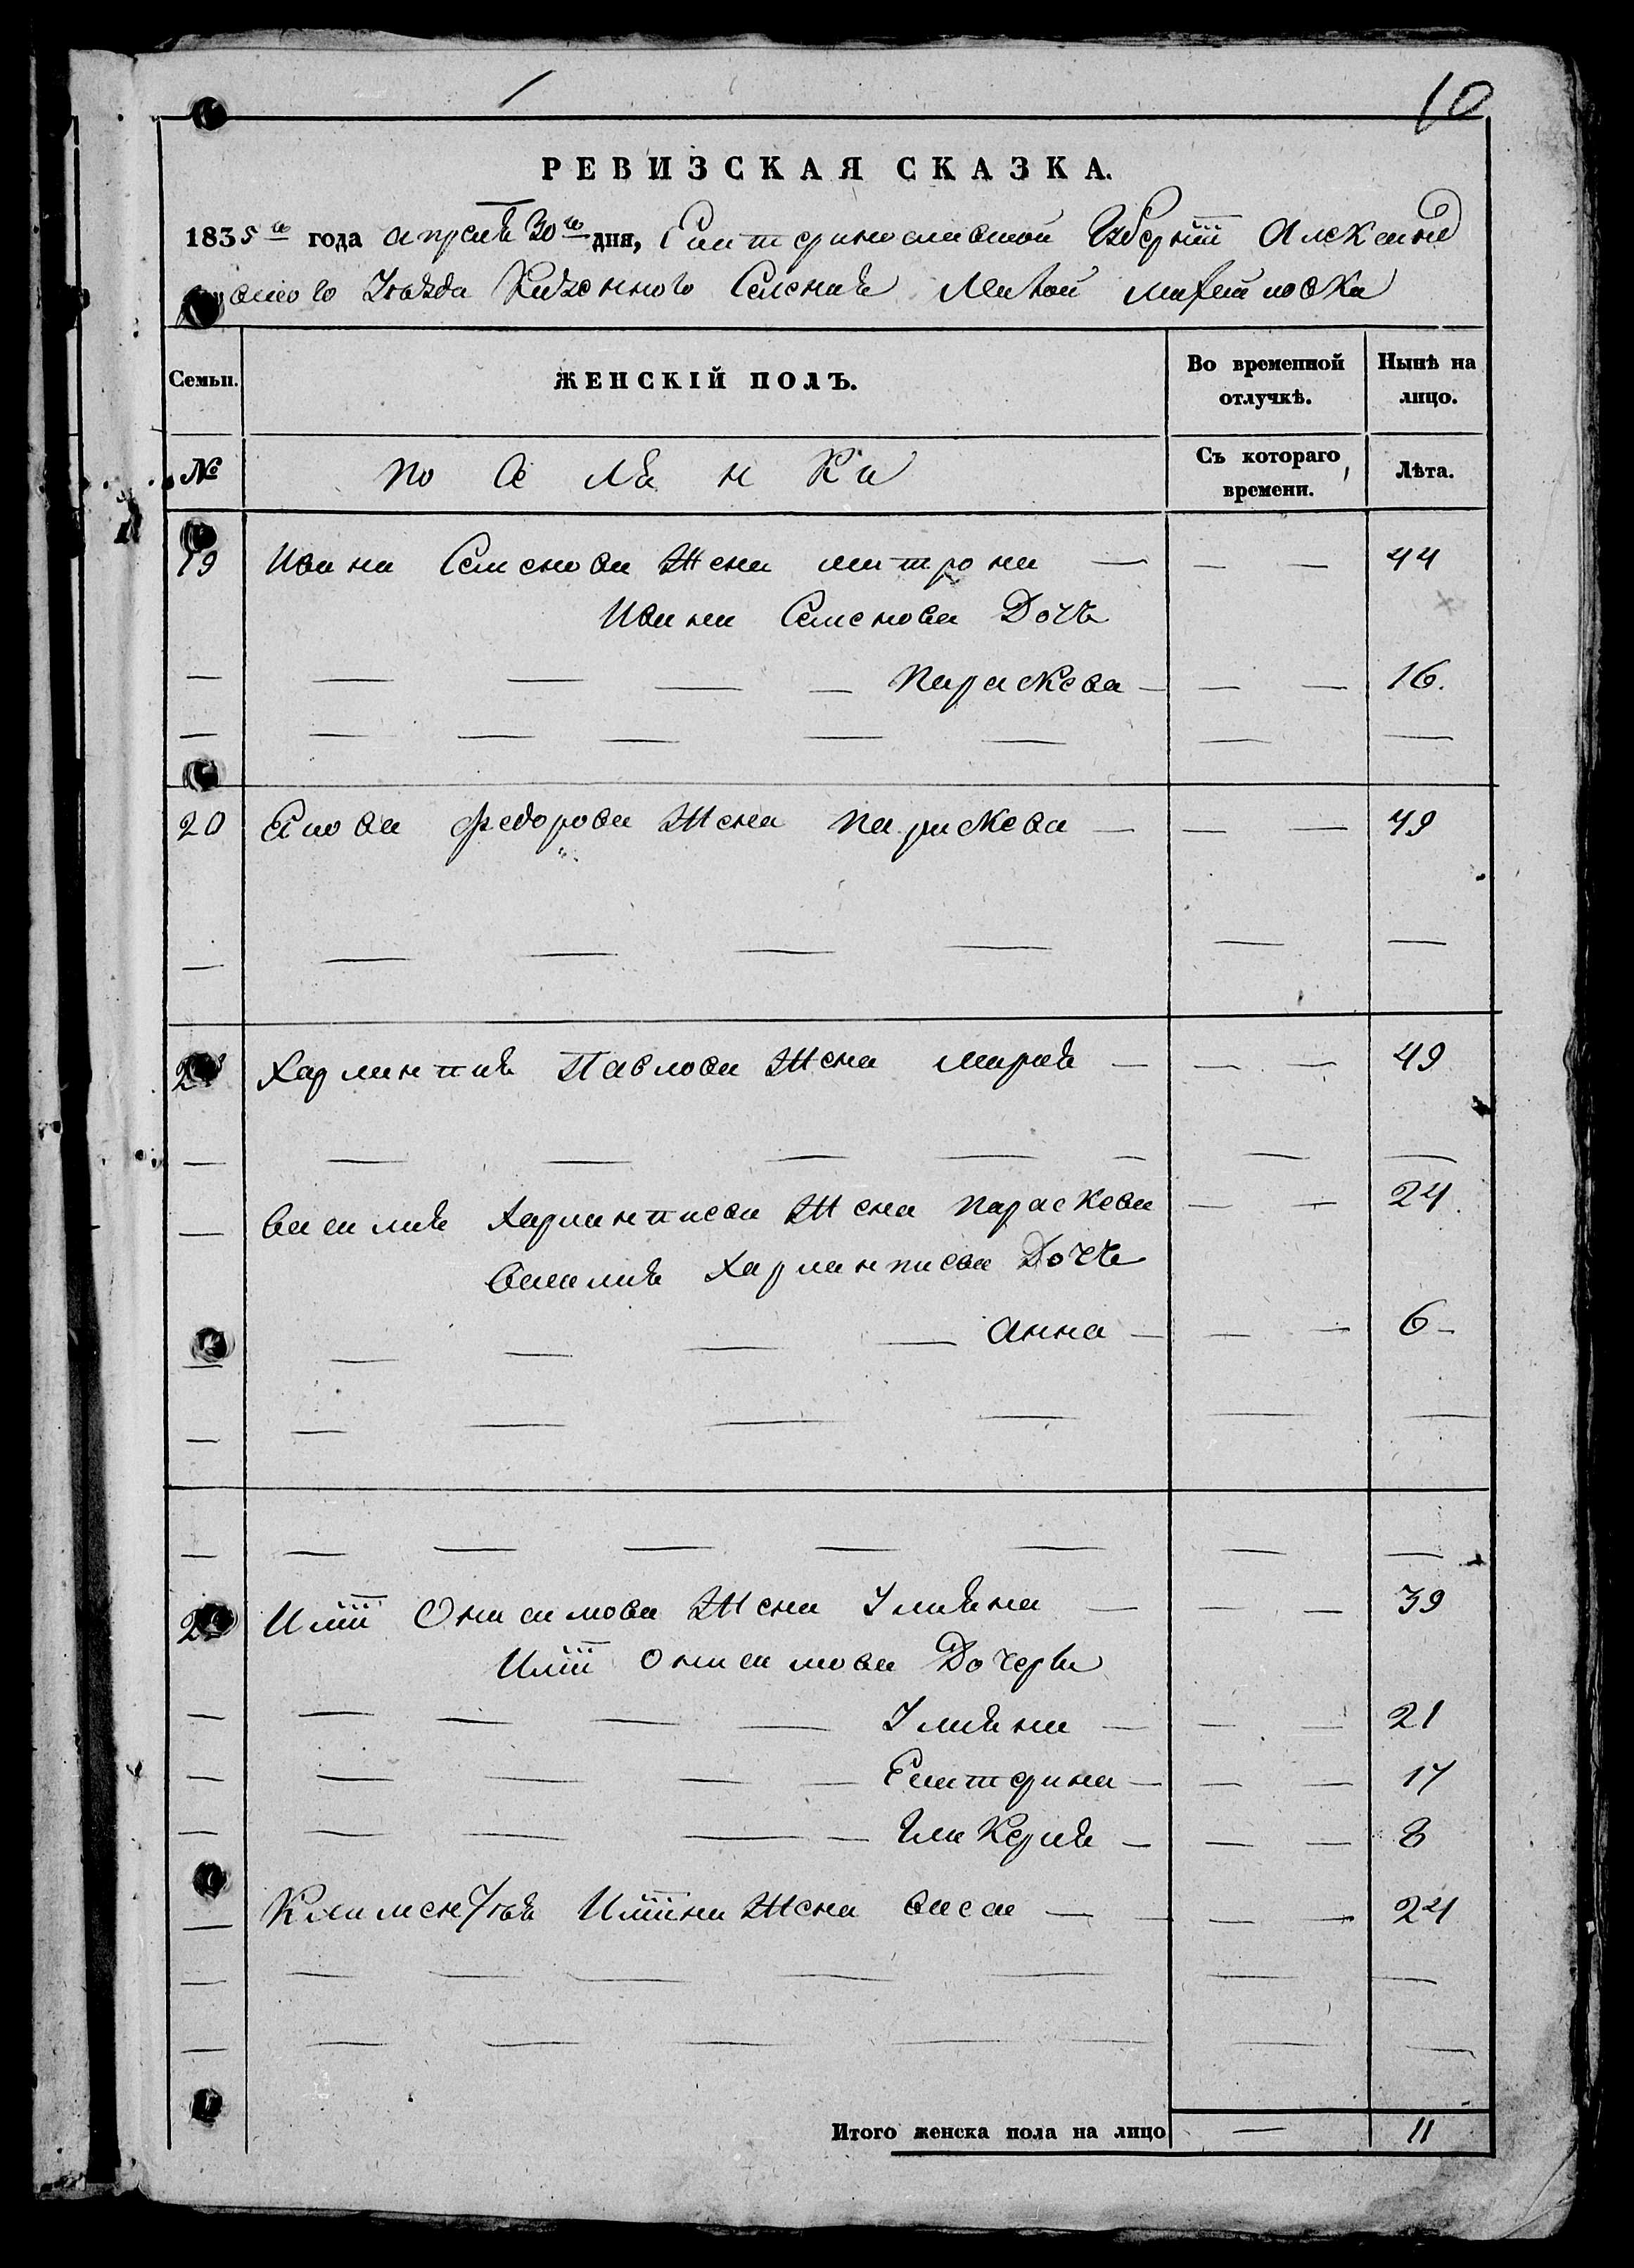 10
РЕВИЗСКАЯ СКАЗКА.
1835го года апреля 30го дня, Екатеринославской Губернiи Александ
скаго Уѣзда Казенного Селенiя Малой михайловка
Семьи.
ЖЕНСКІЙ ПОЛЪ.
Во временной отлучкѣ.
Нынѣ на лицо.
№
поселянка
Съ котораго времени.
Лѣта.
19 Ивана Семенова Жена матрона — — — 44
Ивана Семенова Дочь
— — — — — параскева — — — 16.
20 Федорова Жена параскева — — — 49
Харлампия Павлова Жена мария — — — 49
— василия Харлампиева Жена параскева — — 24
василия Харлампиева Дочь
— — — — — анна — — — 6 —
22 Илiи Онисимова Жена Улияна — — — 39
Илiи онисимова Дочери
— — — — — Улияна — — — 21
— — — — — Екатерина — — — 17
— — — — — Гликерия — — — 8
— Климентья Илiина Жена васса — — — 24
Итого женска пола на лицо — 11